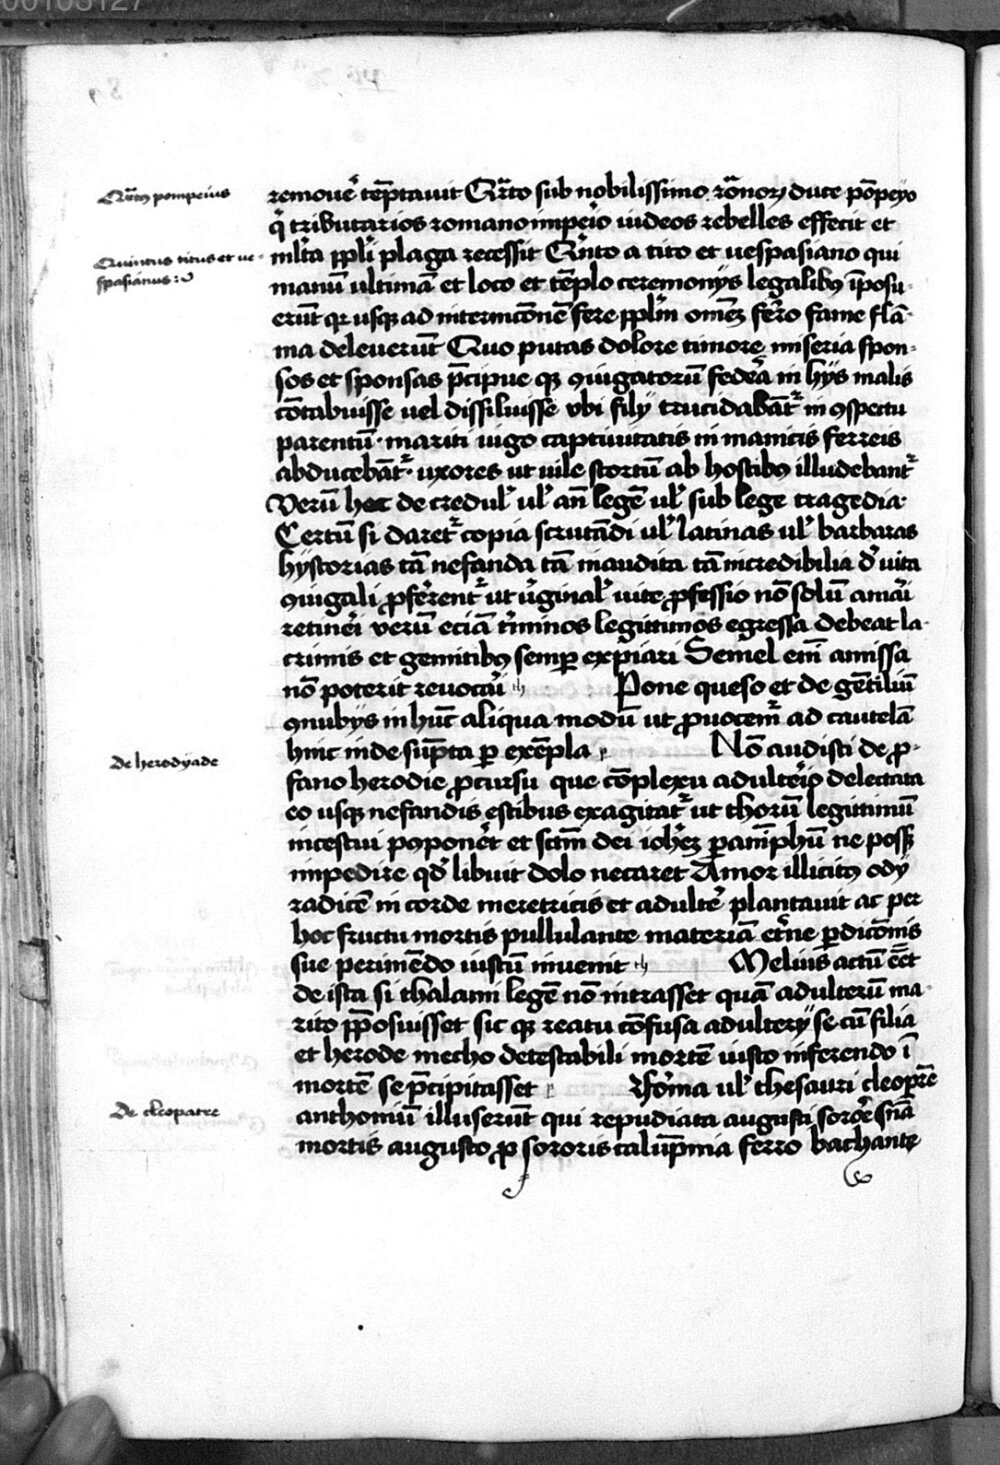 00103127
Qrto pompeius
remouē tēptauit Qrto sub nobilissimo rōnoꝝ duce pōpeyo
q̄ tributarios romano impēio iudeos rebelles effecit et
Quintus titus et ue-
spasianus
mlta ppli plaga recessit Qnto a tito et uespasiano qui
manū ultimā et loco et tēplo ceremonijs legalibꝫ īposu-
erūt qꝛ usqꝫ ad internicōnē fere pplm om̄eꝫ fer̄o fame flā-
ma deleuerūt Quo putas dolore timore miseria spon-
sos et sponsas p̄cipue qꝫ ꝯiugatorū federa in hijs malis
cōtabuisse uel dissiluisse vbi filij trucidabāt᷑ in ꝯspectu
parentū mariti iugo captiuitatis in manicis ferreis
abducebāt᷑ uxores ut uile scortū ab hostibꝫ illudebant᷑
Verū hec de credul᷑ ul᷑ an̄ legē ul᷑ sub lege tragedia
Certū si daret᷑ copia scrutādi ul᷑ latinas ul᷑ barbaras
hystorias tā nefanda tā inaudita tā incredibilia d᷑ uita
ꝯiugali ꝓferent᷑ ut v᷑ginal᷑ uite ꝓfessio nō solū amari
retineri verū eciā t᷑minos legittimos egressa debeat la-
crimis et gemitibꝫ semꝑ expiari Semel em̄ amissa
nō poterit reuocari Pone queso et de gētiliū
ꝯnubijs in hūc aliqua modū ut ꝓuocem᷑ ad cautelā
hinc inde sūpta ꝑ exēpla Nō audisti de ꝓ-
De herodyade
fano herodie ꝓcursu que cōplexu adulterio delectata
eo usqꝫ nefandis estibus exagitat᷑ ut thorū legittimū
incestui p̄poneret et sc̄m dei ioh̄eꝫ paranimphū ne possꝫ
impedire qd᷑ libuit dolo necaret Amor illicitꝫ odij
radicē in corde meretricis et adultere plantauit ac per
hoc fructu mortis pullulante materiā et᷑ne ꝑdicōnis
sue perimēdo iustū inuenit Melius actū eēt
de ista si thalami legē nō intrasset quā adulterū ma-
rito p̄posuisset sic qꝫ reatu cōfusa adulterij se cū filia
et herode mecho detestabili mortē iusto inferendo ī
mortē se p̄cipitasset Forma ul᷑ thesauri cleopat᷑e
De cleopatre
anthoniū illuserūt qui repudiata augusti sorore sn̄ia
mortis augusto ꝓ sororis ferro bachante